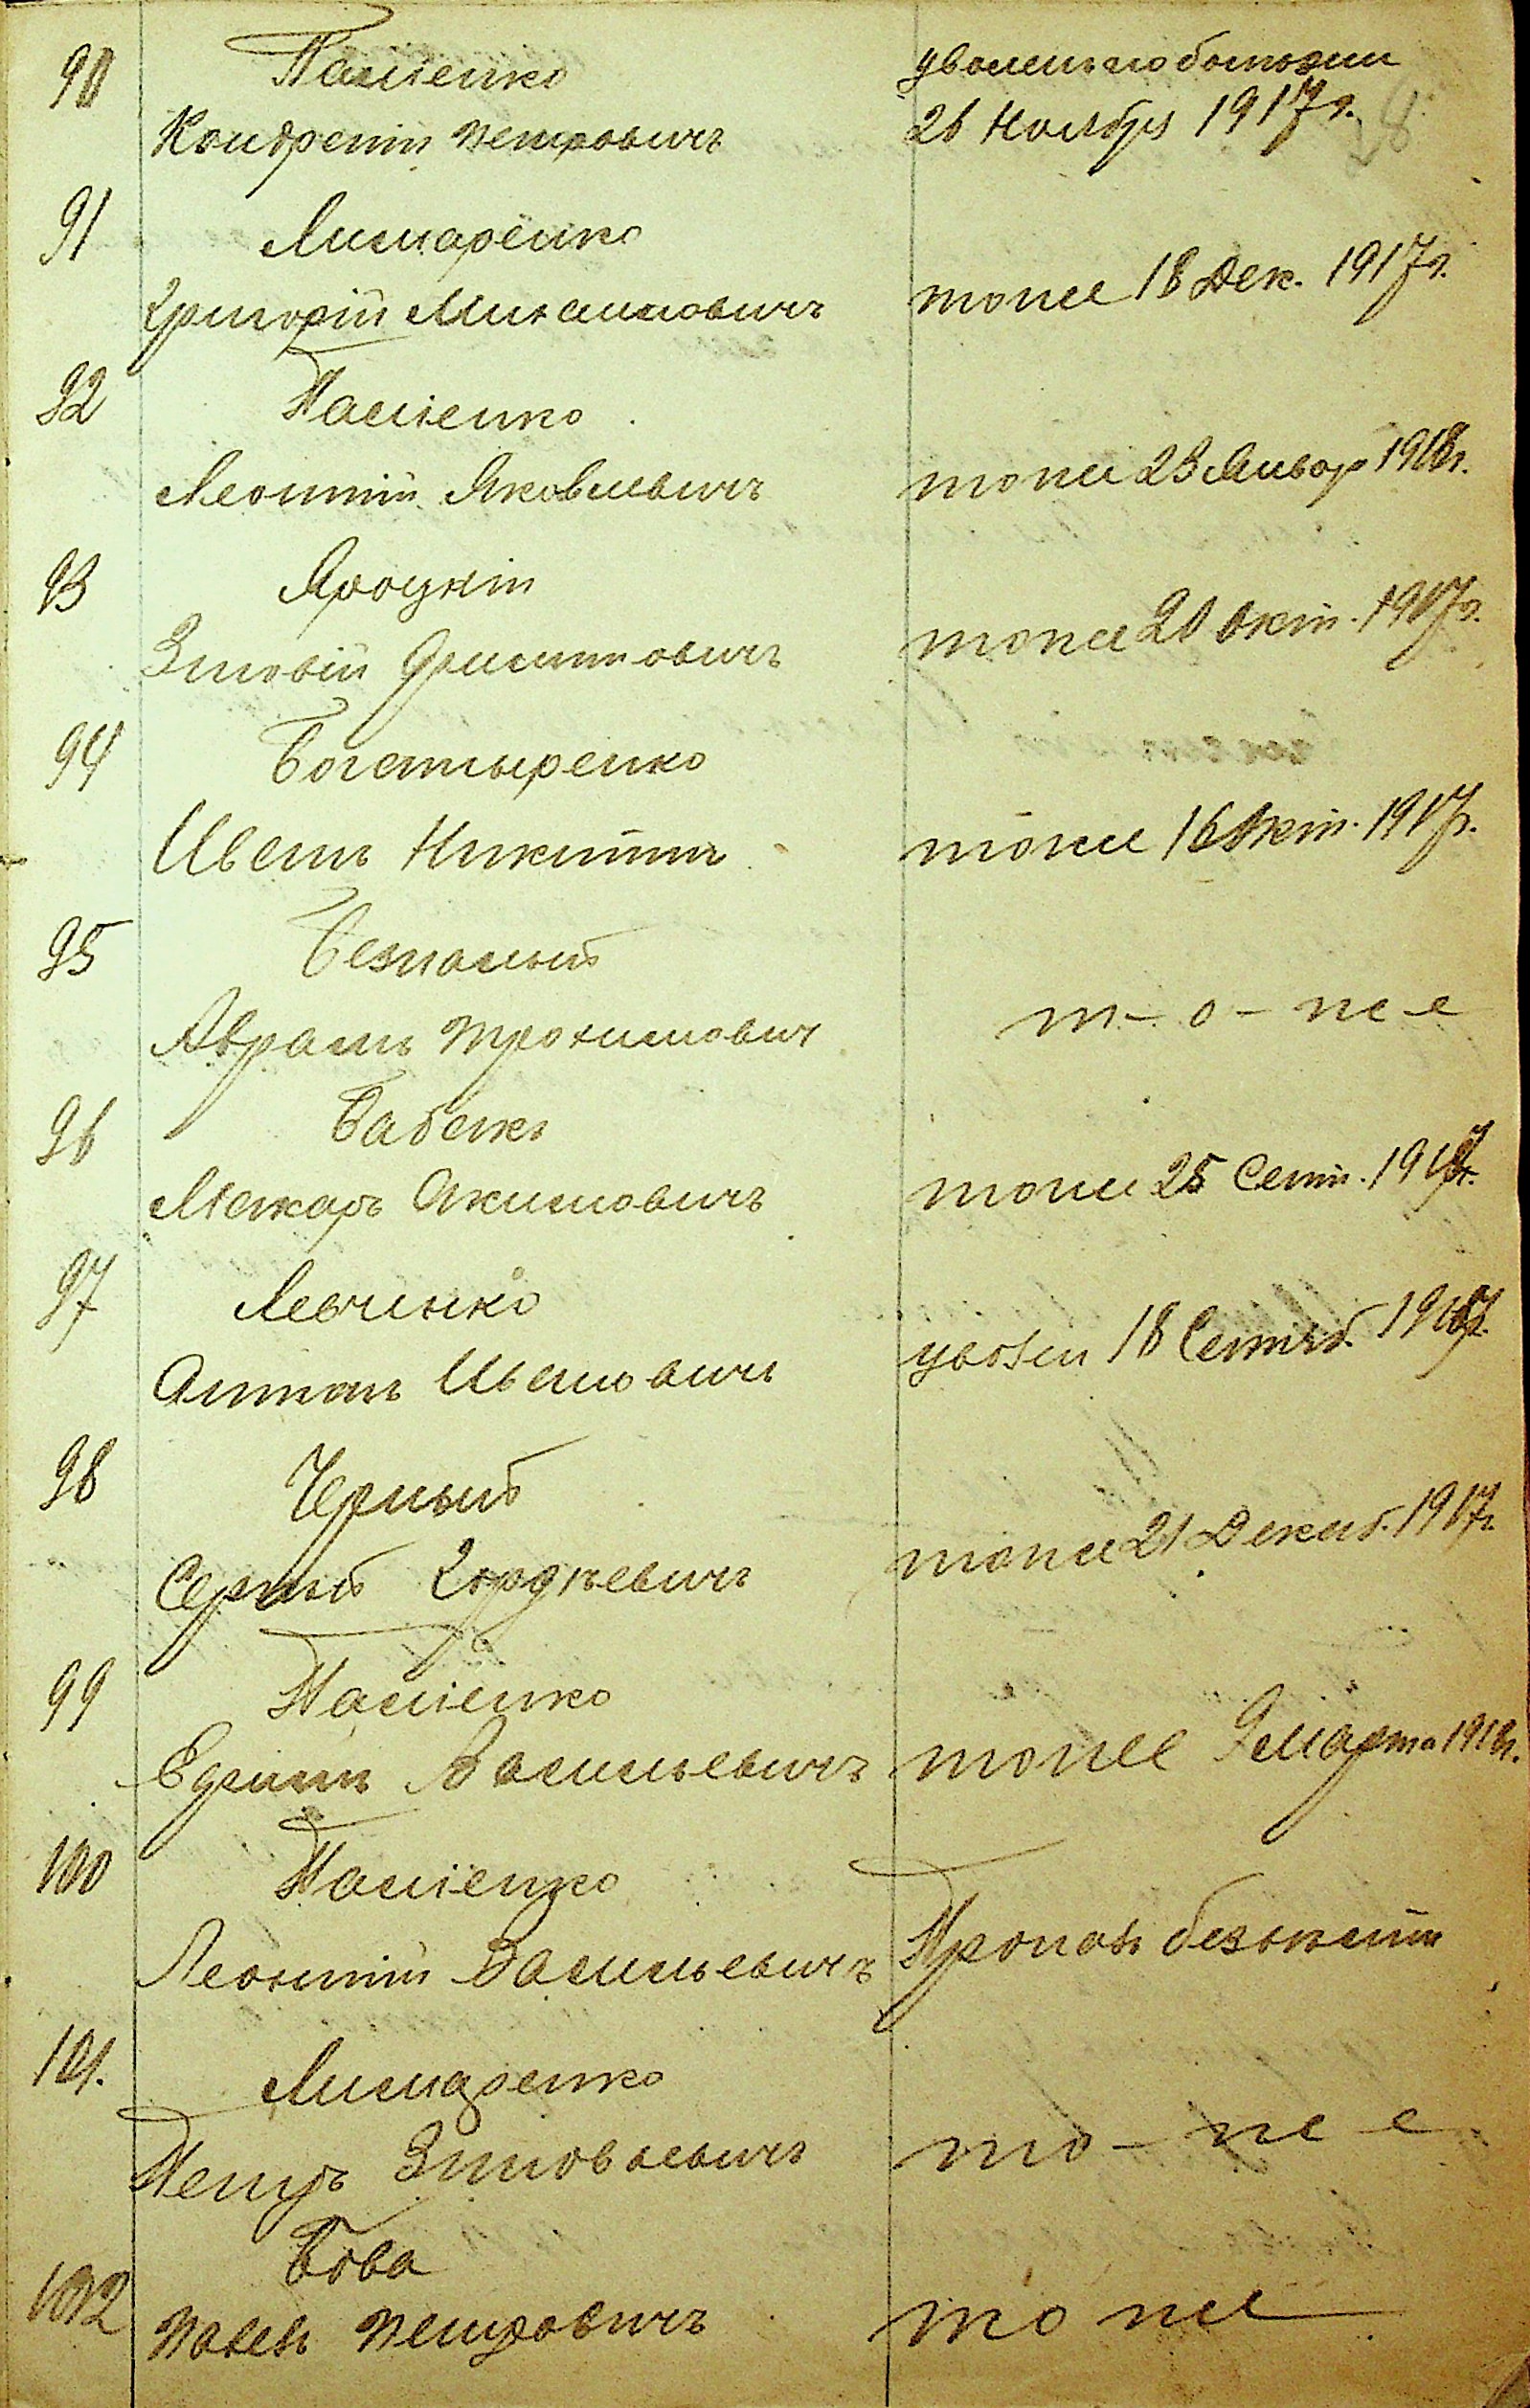 90 Палiенко уволенъ по болезни
Кондратiй Петровичъ 26 Ноября 1917 г.
91 Лимаренко
Григорiй Михайловичъ тоже 18 Дек. 1917 г.
92 Палiенко
Леонтiй Яковлевичъ тоже 23 Январ 1918 г.
93 Яроцкiй
Зиновiй тоже 20 Окт. 1917 г.
94 Богатыренко
Иванъ Никитинъ тоже 16 Окт. 1917 г.
95
Аврамъ Трохимовичъ то-же
96 Бабенко
Макаръ Акимовичъ тоже 25 Сент. 1917 г.
97 Левченко
Антонъ Ивановичъ 18 Сентяб. 1917 г.
98 Черный
Сергый Гордѣевичъ тоже 21 Декаб. 1917 г.
99 Палiенко
Ефимъ Васильевичъ тоже 9 Марта 1918 г.
100 Палiенко
Леонтiй Васильевичъ Пропалъ безъ вести
101. Лимаренко
Петръ Зиновьевичъ то-же
102 Бова
Павелъ Петровичъ тоже